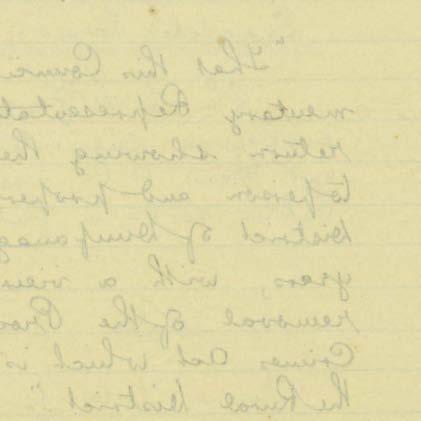 "That this Counci
mentary Representat
return showing the
to person and proper
District of Dunfanag
years, with a view
removal of the Proc
Crimes Act which is
the Rural District."